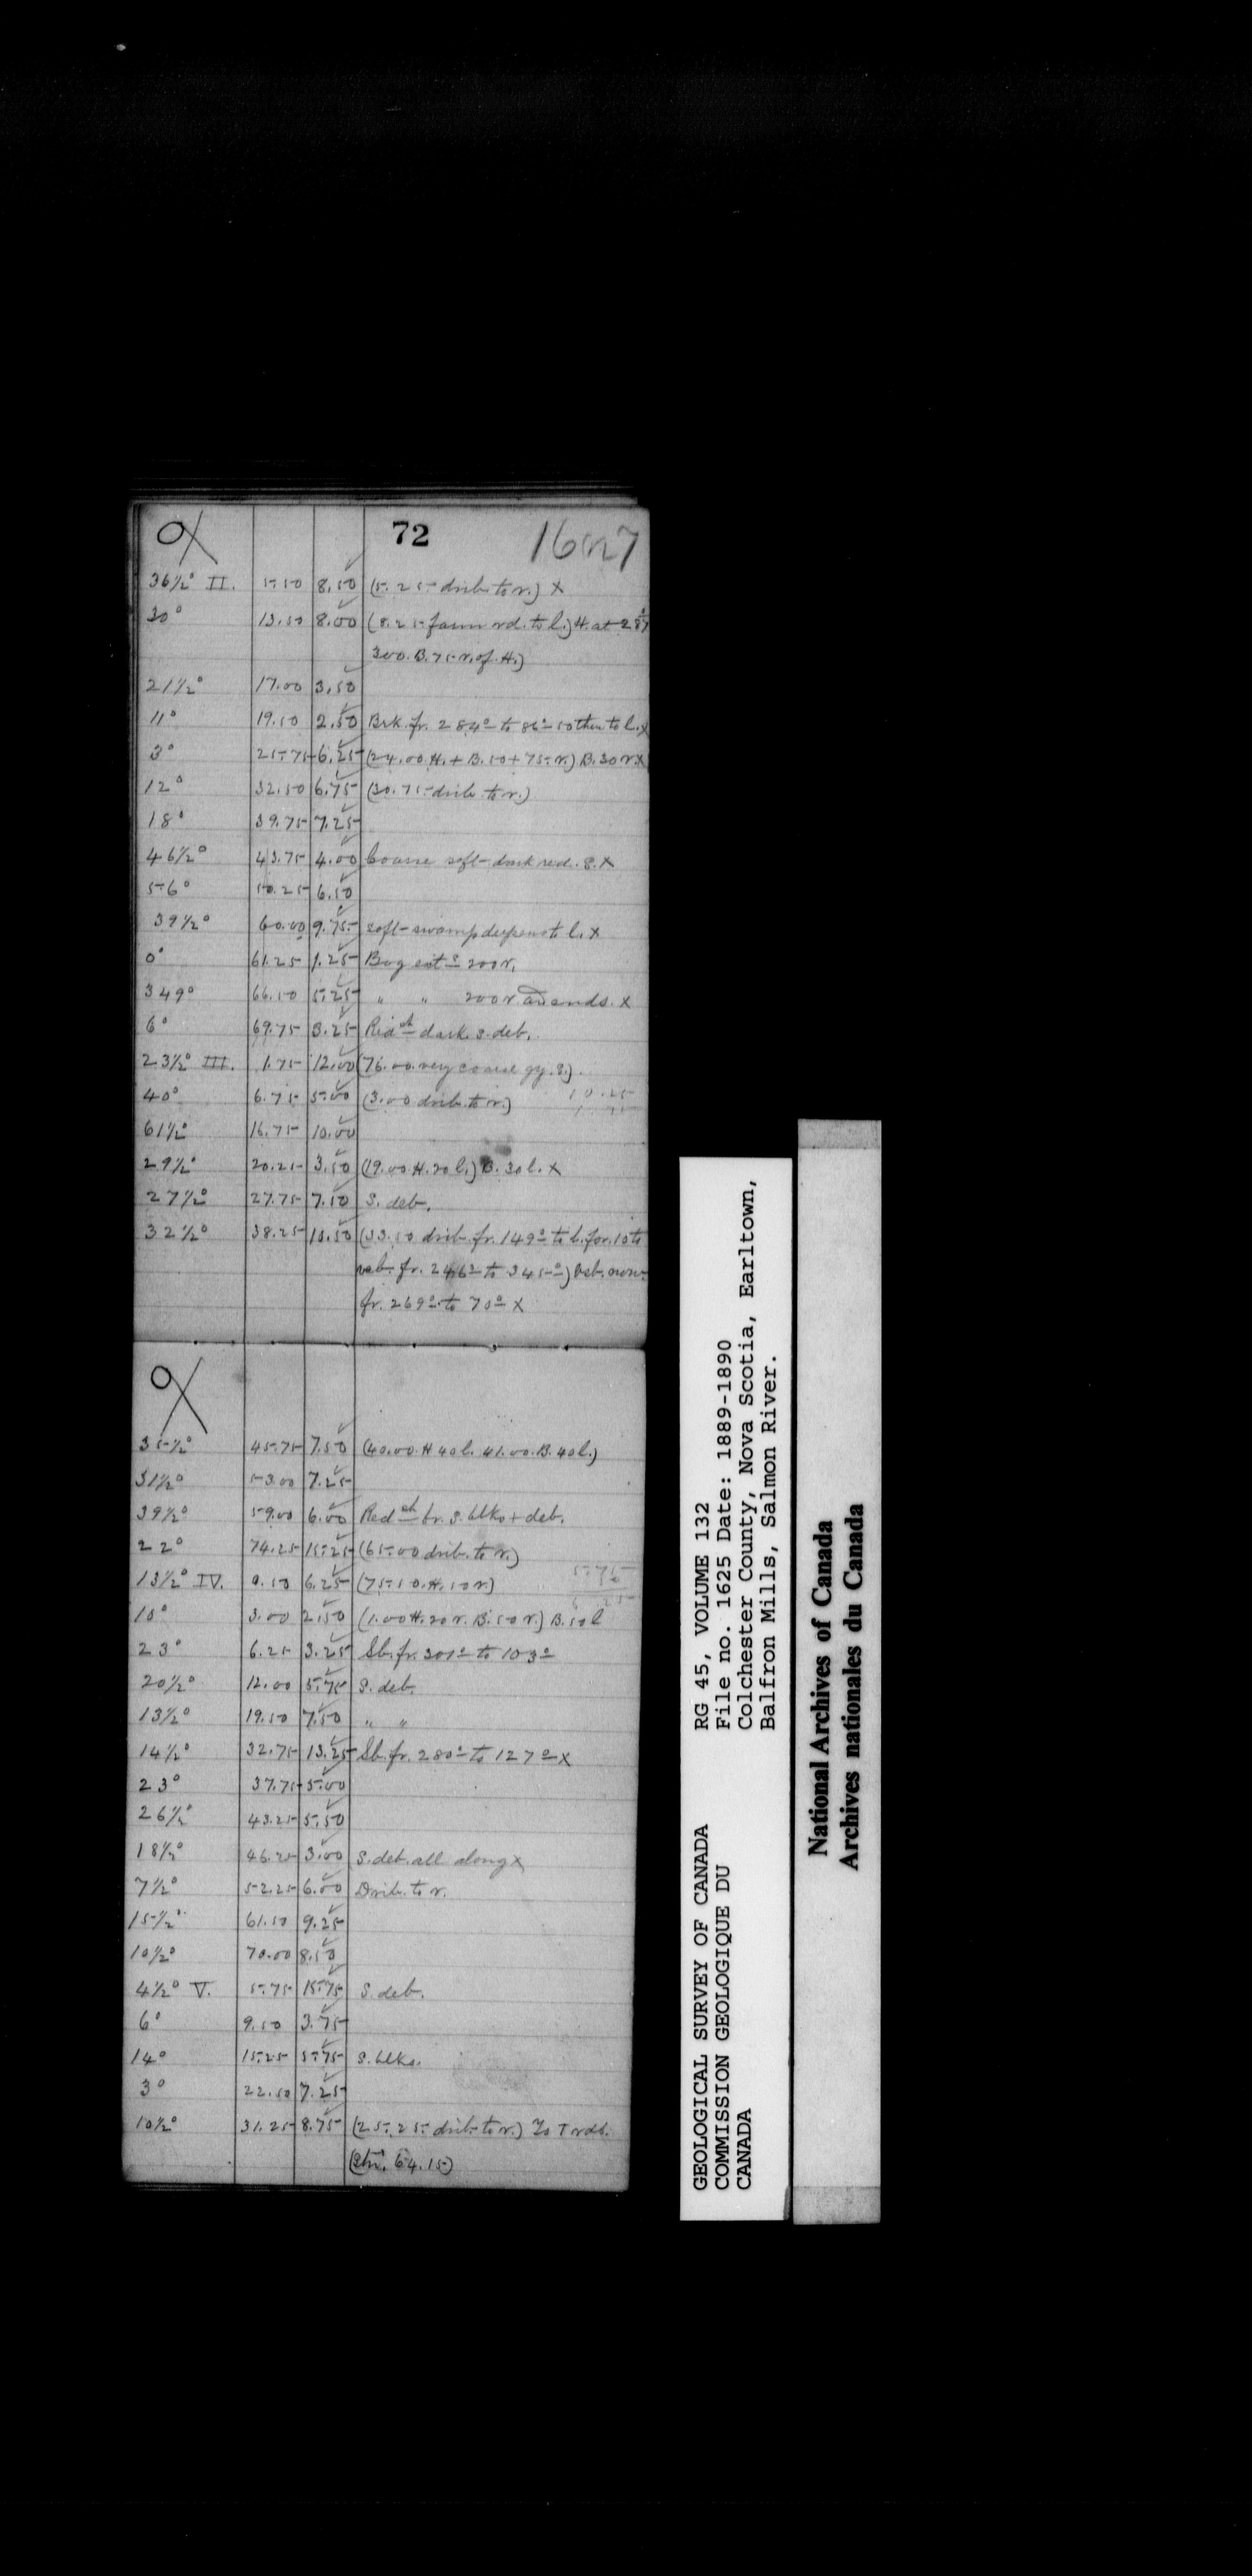 72
36½° II. 5.50 8.50 (5.25 drib. to r.) X
30° 13.50 8.00 (8.25 farm rd. to l.) H. at
300. B. 75 r. of H.)
21½° 17.00 3.50
11° 19.50 2.50 Brk. fr. 284° to 86° 50 then to l. X
3° 25.75 6.25 (24.00 H. + B. 50 + 75 r.) B. 30 r. X
12° 32.50 6.75 (30.75 drib. to r.)
18° 39.75 7.25
46½° 43.75 4.00 Coarse soft dark red. S. X
56° 50.25 6.50
39½° 60.00 9.75 soft swamp deepens to l. X
0° 61.25 1.25 Bog ext.s 200 r.
349° 66.50 5.25 " " 200 r. ends. X
6° 69.75 3.25 Redsh dark S. deb.
23½° III. 1.75 12.00 (76.00 very coarse gy. S.)
40° 6.75 5.00 (3.00 drib. to r.)
61½° 16.75 10.00
29½° 20.25 3.50 (19.00 H. 20 l.) B. 30 l. X
27½° 27.75 7.50 S. deb.
32½° 38.25 10.50 (33.50 drib. fr. 149° to l. for 10 to
fr. 246° to 345°)
fr. 269° to 70° X
35½° 45.75 7.50 (40.00 H 40 l. 41.00 B. 40 l.)
31½° 53.00 7.25
39½° 59.00 6.00 Redsh br. S. blks + deb.
22° 74.25 15.25 (65.00 drib. to r.)
13½° IV. 0.50 6.25 (75.50 H. 50 r.)
10° 3.00 2.50 (1.00 H. 20 r. B. 50 r.) B. 50 l
23° 6.25 3.25 Sb. fr. 301° to 103°
20½° 12.00 5.75 S. deb.
13½° 19.50 7.50 " "
14½° 32.75 13.25 Sb. fr. 280° to 127° X
23° 37.75 5.00
26½° 43.25 5.50
18½° 46.25 3.00 S. deb. all along X
7½° 52.25 6.00 Drib. to r.
15½° 61.50 9.25
10½° 70.00 8.50
4½° V. 5.75 15.75 S. deb.
6° 9.50 3.75
14° 15.25 5.75 S. blks.
3° 22.50 7.25
10½° 31.25 8.75 (25.25 drib. to r.) To T rds.
64.15)
GEOLOGICAL SURVEY OF CANADA
COMMISSION GEOLOGIQUE DU
CANADA
RG 45, VOLUME 132
File no. 1625 Date: 1889-1890
Colchester County, Nova Scotia, Earltown,
Balfron Mills, Salmon River.
National Archives of Canada
Archives nationales du Canada